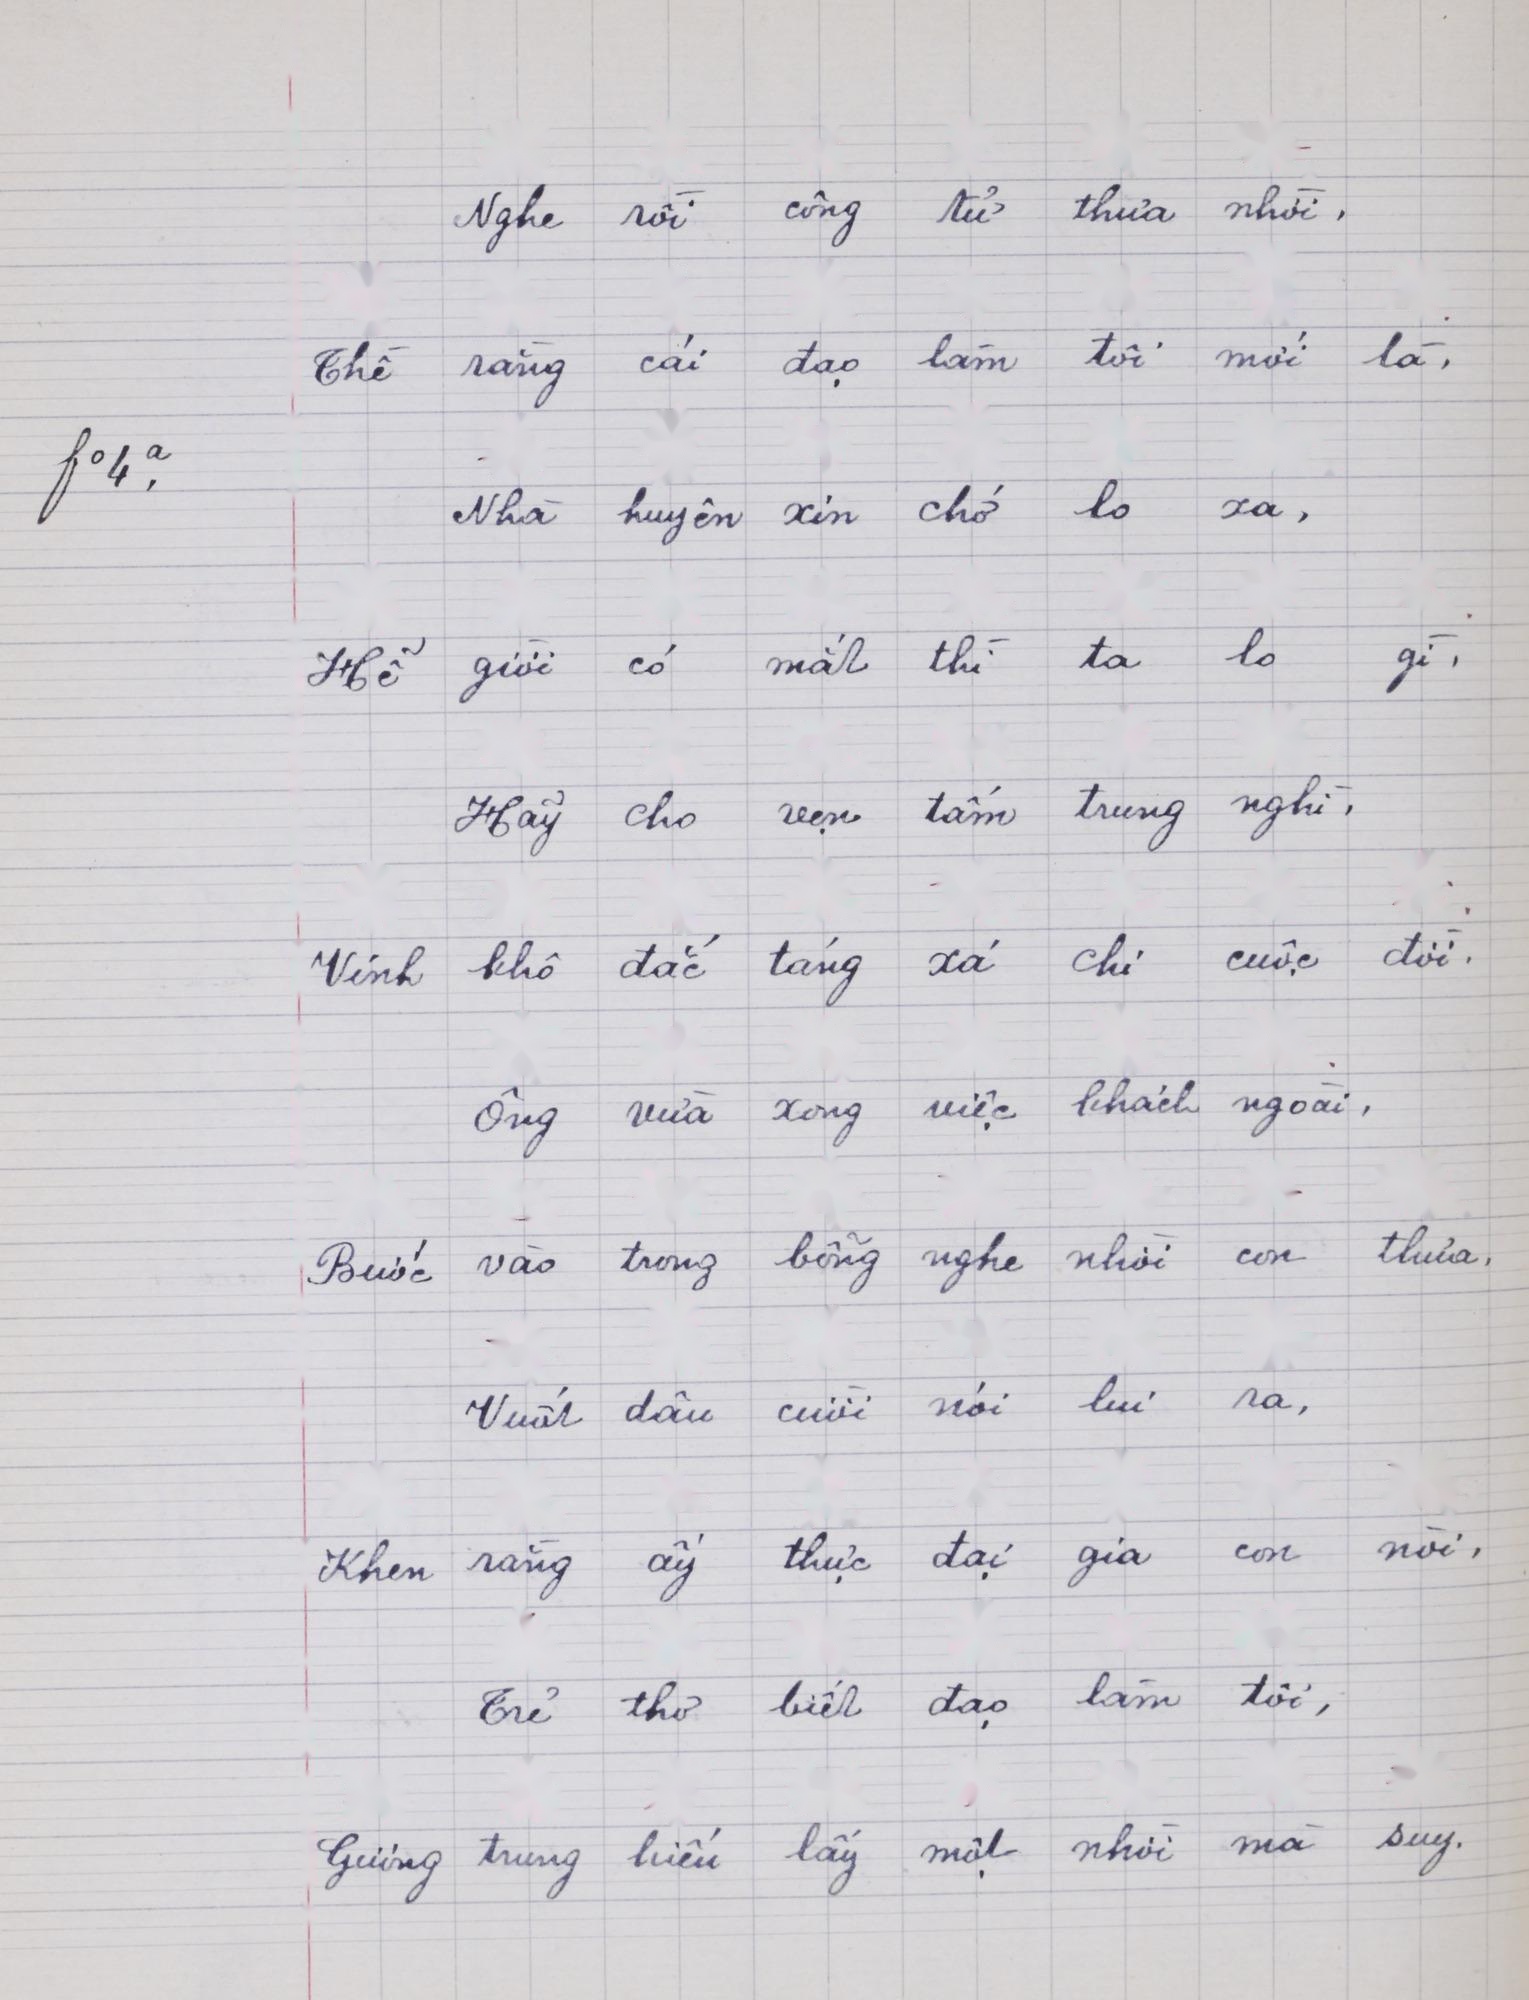 Nghe rồi công tử thưa nhời,
Thề rằng cái đạo làm tôi mới là,
fº4ª.
Nhà huyên xin chớ lo xa,
Hễ giời có mắt thì ta lo gì,
Hãy cho vẹn tấm trung nghì,
Vinh khô đắc táng xá chi cuộc đời.
Ông vừa xong việc khách ngoài,
Bước vào trong bỗng nghe nhời con thưa.
Vuốt dâu cười nói lui ra,
Khen rằng ấy thực đại gia con nòi,
Trẻ thơ biết đạo làm tôi,
Gương trung hiếu lấy một nhời mà suy.